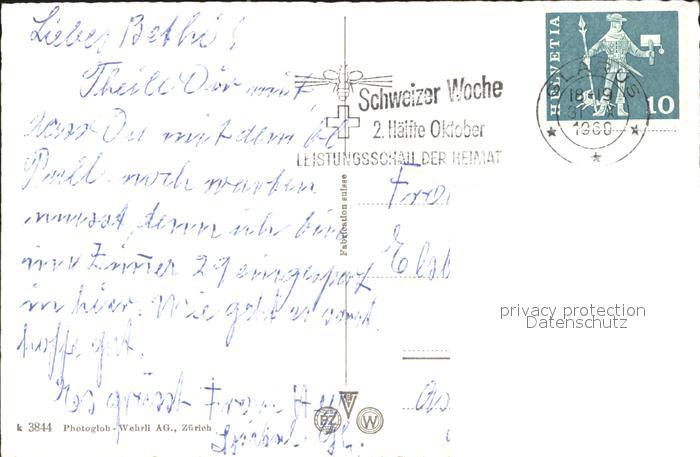 Liebes Bethi!
Theile Dir mit,
dass Du mit dem
noch warten
musst, denn ich bin
im Zimmer 29 eingesperrt
in hier. Wie geht es sonst
hoffe gut.
Es grüsst Frau
Spital Gl.
k 3844 Photoglob-Wehrli AG., Zürich
Fabrication suisse
PZ
W
Schweizer Woche
2. Hälfte Oktober
LEISTUNGSSCHAU DER HEIMAT
HELVETIA
10
GLARUS
18-19
1960
Frau
Elsb
privacy protection
Datenschutz